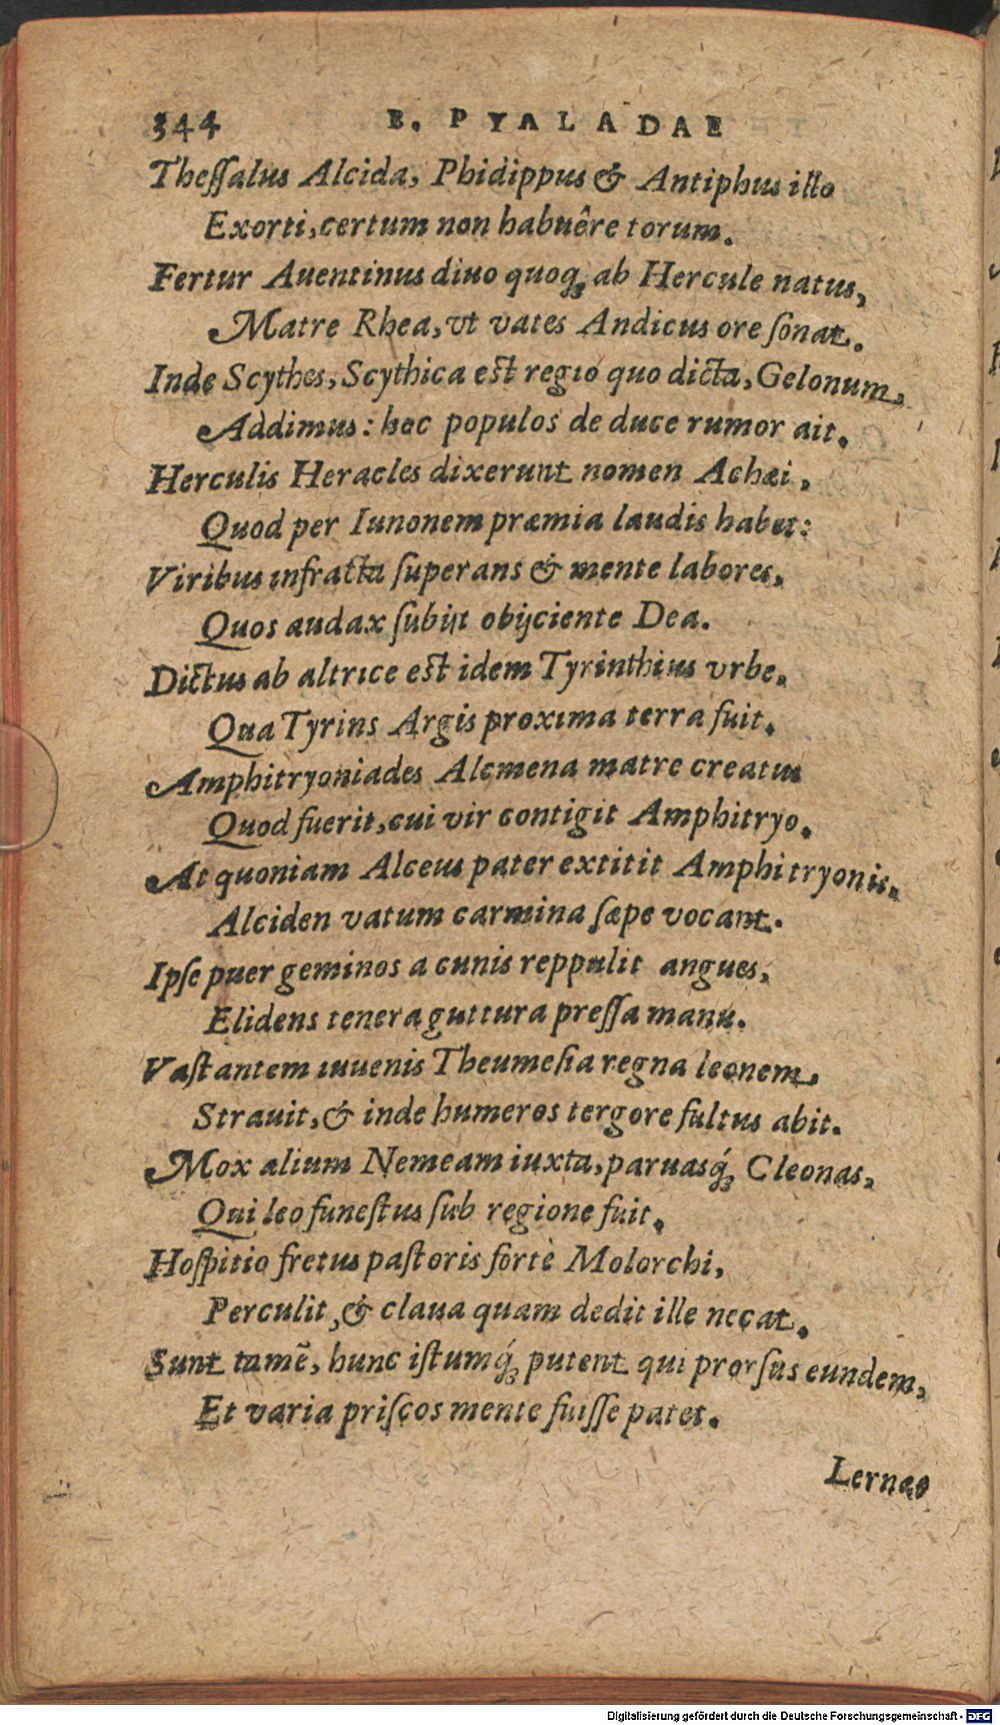 344 B. PYALADAE
Theſſalus Alcida, Phidippus & Antiphus illo
Exorti, certum non habuêre torum.
Fertur Auentinus diuo quoq; ab Hercule natus,
Matre Rhea, vt vates Andicus ore ſonat.
Inde Scythes, Scythica est regio quo dicta, Gelonum,
Addimus: hec populos de duce rumor ait.
Herculis Heracles dixerunt nomen Achæi,
Quod per Iunonem præmia laudis habet:
Viribus infracta ſuperans & mente labores,
Quos audax ſubijt obijciente Dea.
Dictus ab altrice est idem Tyrinthius vrbe,
Qua Tyrins Argis proxima terra fuit.
Amphitryoniades Alcmena matre creatus
Quod fuerit, cui vir contigit Amphitryo.
At quoniam Alceus pater extitit Amphitryonis,
Alciden vatum carmina ſæpe vocant.
Ipſe puer geminos a cunis reppulit angues,
Elidens tenera guttura preſſa manu.
Vaſtantem iuuenis Theumeſia regna leonem,
Strauit, & inde humeros tergore fultus abit.
Mox alium Nemeam iuxta, paruasq́; Cleonas,
Qui leo funeſtus ſub regione fuit,
Hoſpitio fretus paſtoris fortè Molorchi,
Perculit, & claua quam dedit ille necat.
Sunt tamẽ, hunc iſtumq́; putent qui prorſus eundem,
Et varia priſcos mente fuiſſe patet.
Lernæo
Digitalisierung gefördert durch die Deutsche Forschungsgemeinschaft - DFG